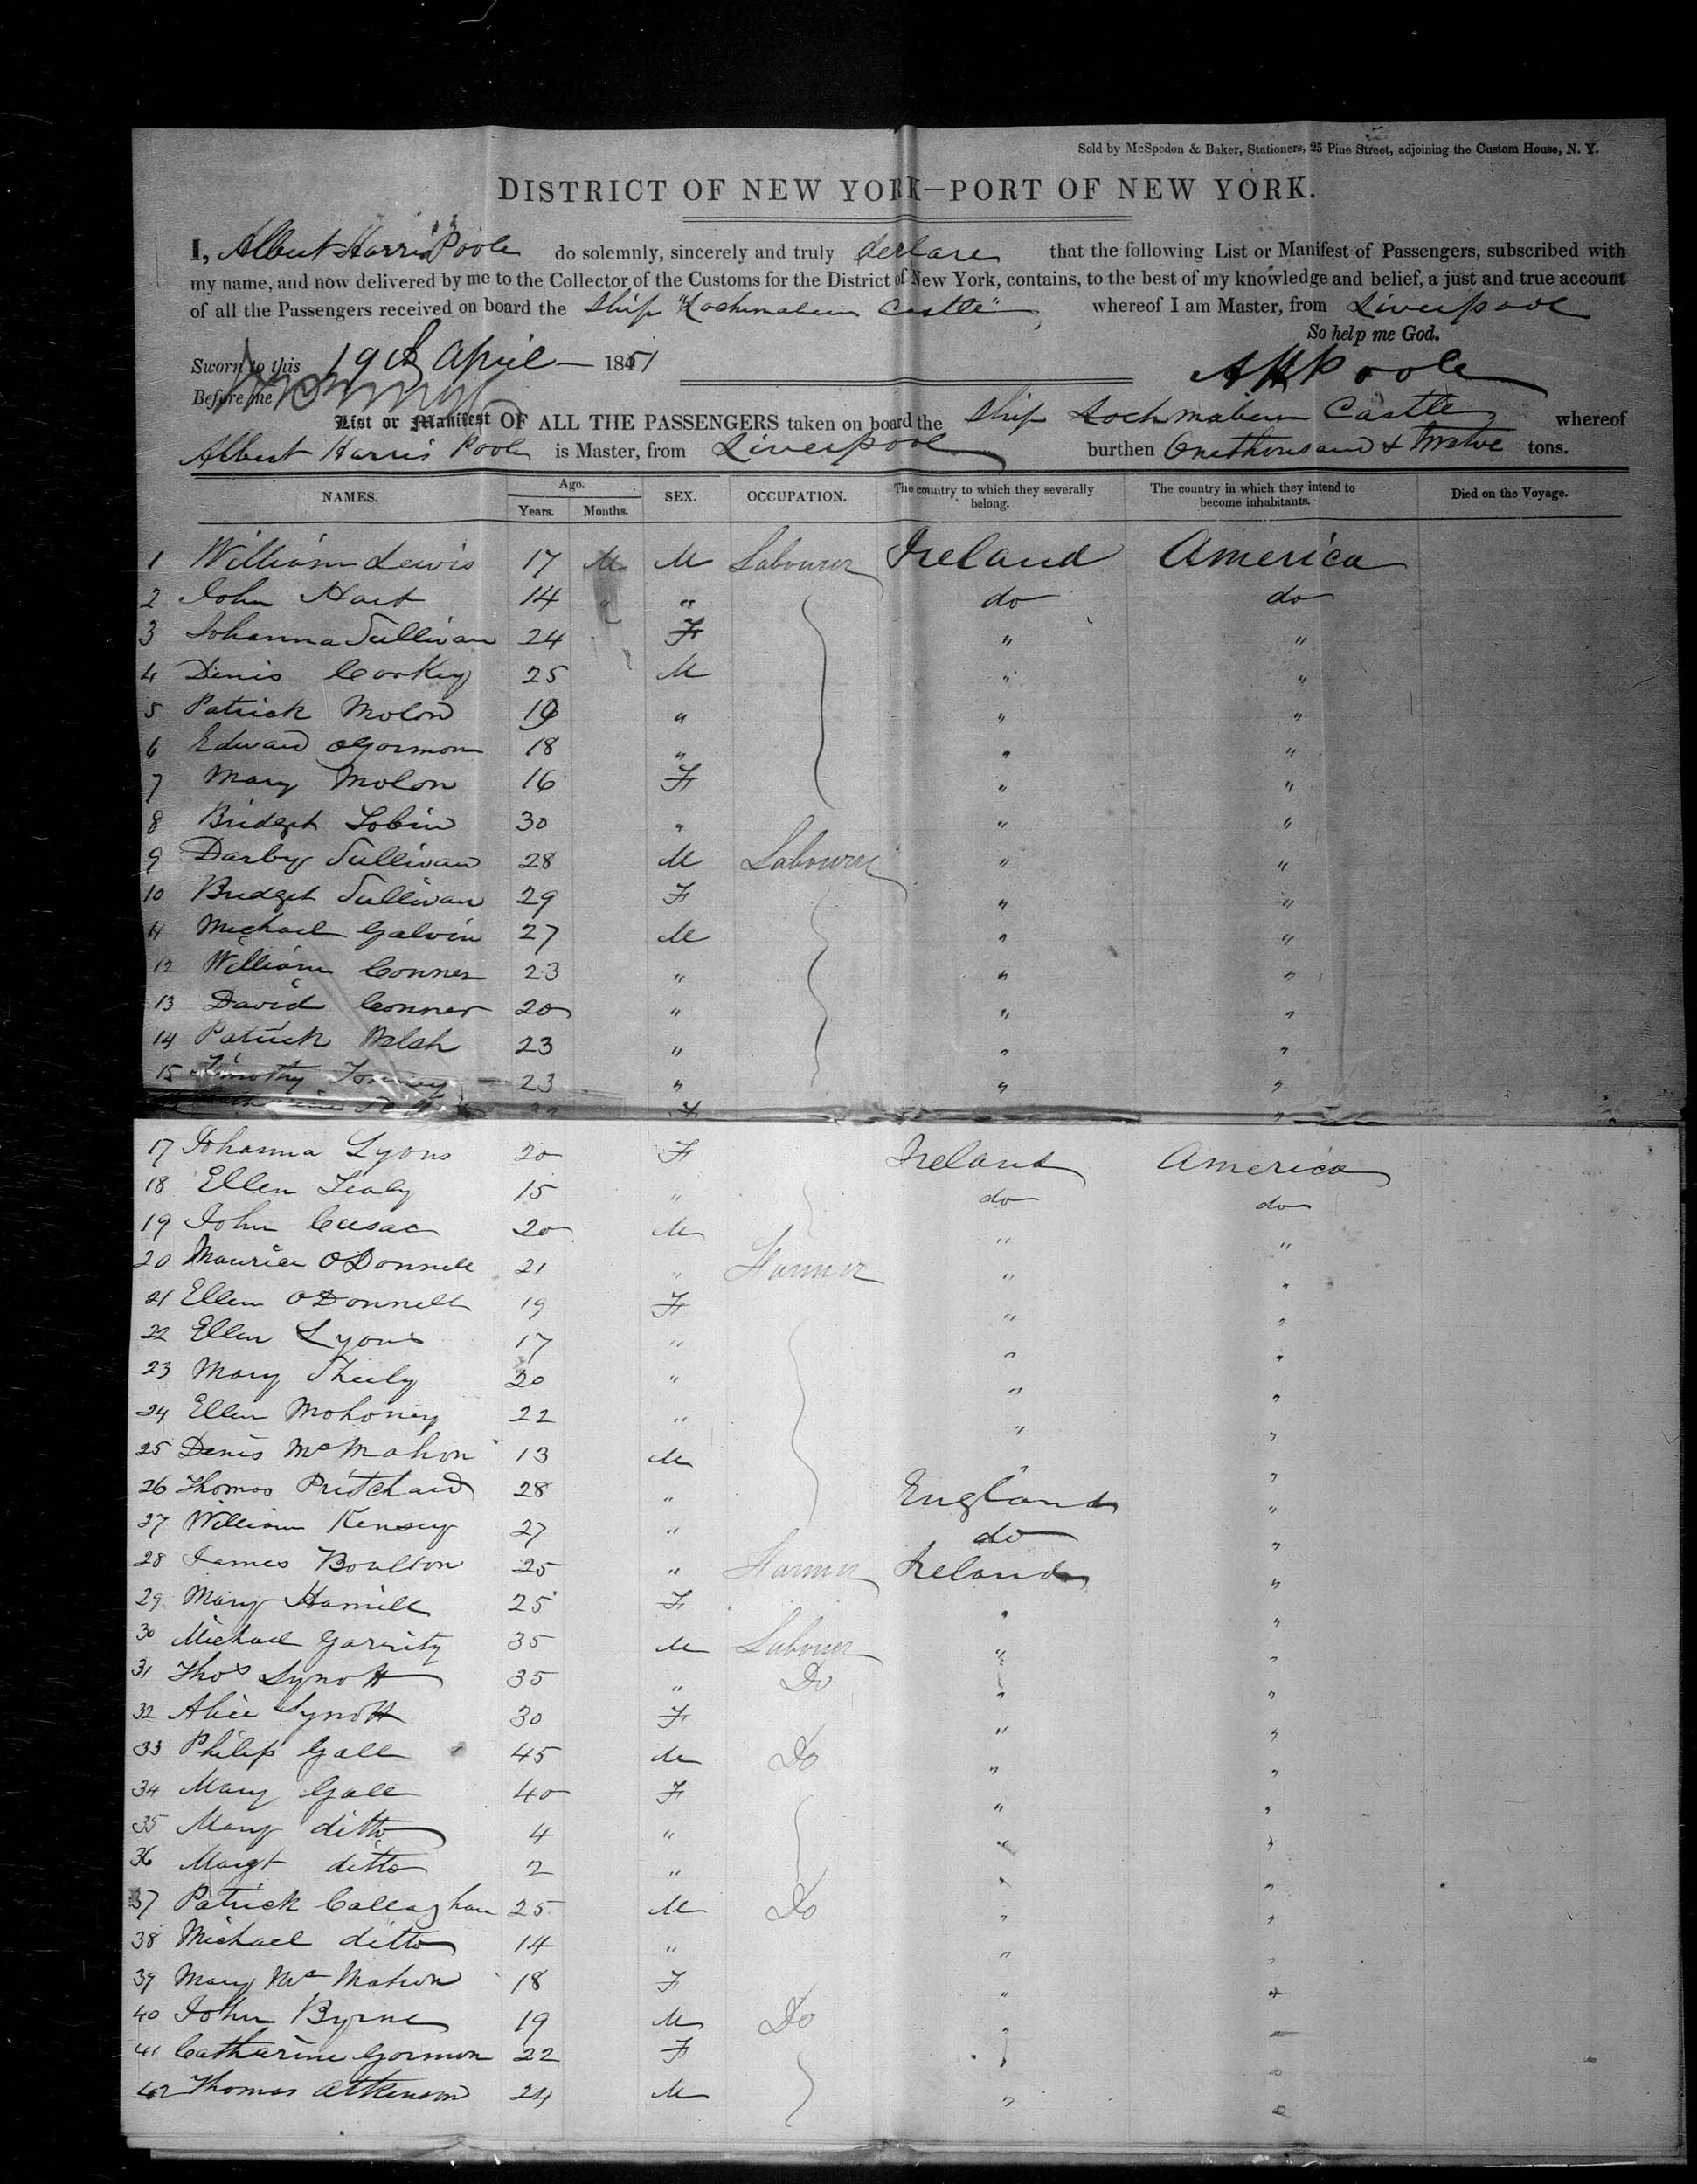 Sold by McSpedon & Baker, Stationers, 25 Pine Street, adjoining the Custom House, N. Y.
DISTRICT OF NEW YORK—PORT OF NEW YORK.
I, Albert Harris Poole do solemnly, sincerely and truly declare that the following List or Manifest of Passengers, subscribed with
my name, and now delivered by me to the Collector of the Customs for the District of New York, contains, to the best of my knowledge and belief, a just and true account
of all the Passengers received on board the Ship "Lochmaben Castle" whereof I am Master, from Liverpool
So help me God.
Sworn to this 19th April 1851
AHPoole
Before me
List or Manifest OF ALL THE PASSENGERS taken on board the Ship Lochmaben Castle whereof
Albert Harris Poole is Master, from Liverpool burthen One thousand & Twelve tons.
NAMES. Age. Years. Months. SEX. OCCUPATION. The country to which they severally belong. The country in which they intend to become inhabitants. Died on the Voyage.
1 William Lewis 17 M Labourer Ireland America
2 John Hart 14 " do do
3 Johanna Sullivan 24 F " "
4 Denis Corkey 25 M " "
5 Patrick Molon 19 " " "
6 Edward OGormon 18 " " "
7 Mary Molon 16 F " "
8 Bridget Tobin 30 " " "
9 Darby Sullivan 28 M Labourer " "
10 Bridget Sullivan 29 F " "
11 Michael Galvin 27 M " "
12 William Conner 23 " " "
13 David Conner 20 " " "
14 Patrick Welsh 23 " " "
15 Timothy 23 " " "
F "
17 Johanna Lyons 20 F Ireland America
18 Ellen Lealy 15 " do do
19 John Cusac 20 M " "
20 Maurice ODonnell 21 " Farmer " "
21 Ellen ODonnell 19 F " "
22 Ellen Lyons 17 " " "
23 Mary Sheely 20 " " "
24 Ellen Mohoney 22 " " "
25 Denis McMahon 13 M " "
26 Thomas Pritchard 28 " England "
27 William Kensey 27 " do "
28 James Boulton 25 " Farmer Ireland "
29 Mary Hamill 25 F " "
30 Michael Garrity 35 M Labourer " "
31 Thos Synott 35 " Do " "
32 Alice Synott 30 F " "
33 Philip Gall 45 M Do " "
34 Mary Gall 40 F " "
35 Mary ditto 4 " " "
36 Margt ditto 2 " " "
37 Patrick Callaghan 25 M Do " "
38 Michael ditto 14 " " "
39 Mary McMahon 18 F " "
40 John Byrne 19 M Do "
41 Catharine Gormon 22 F "
42 Thomas Atkinson 24 M "